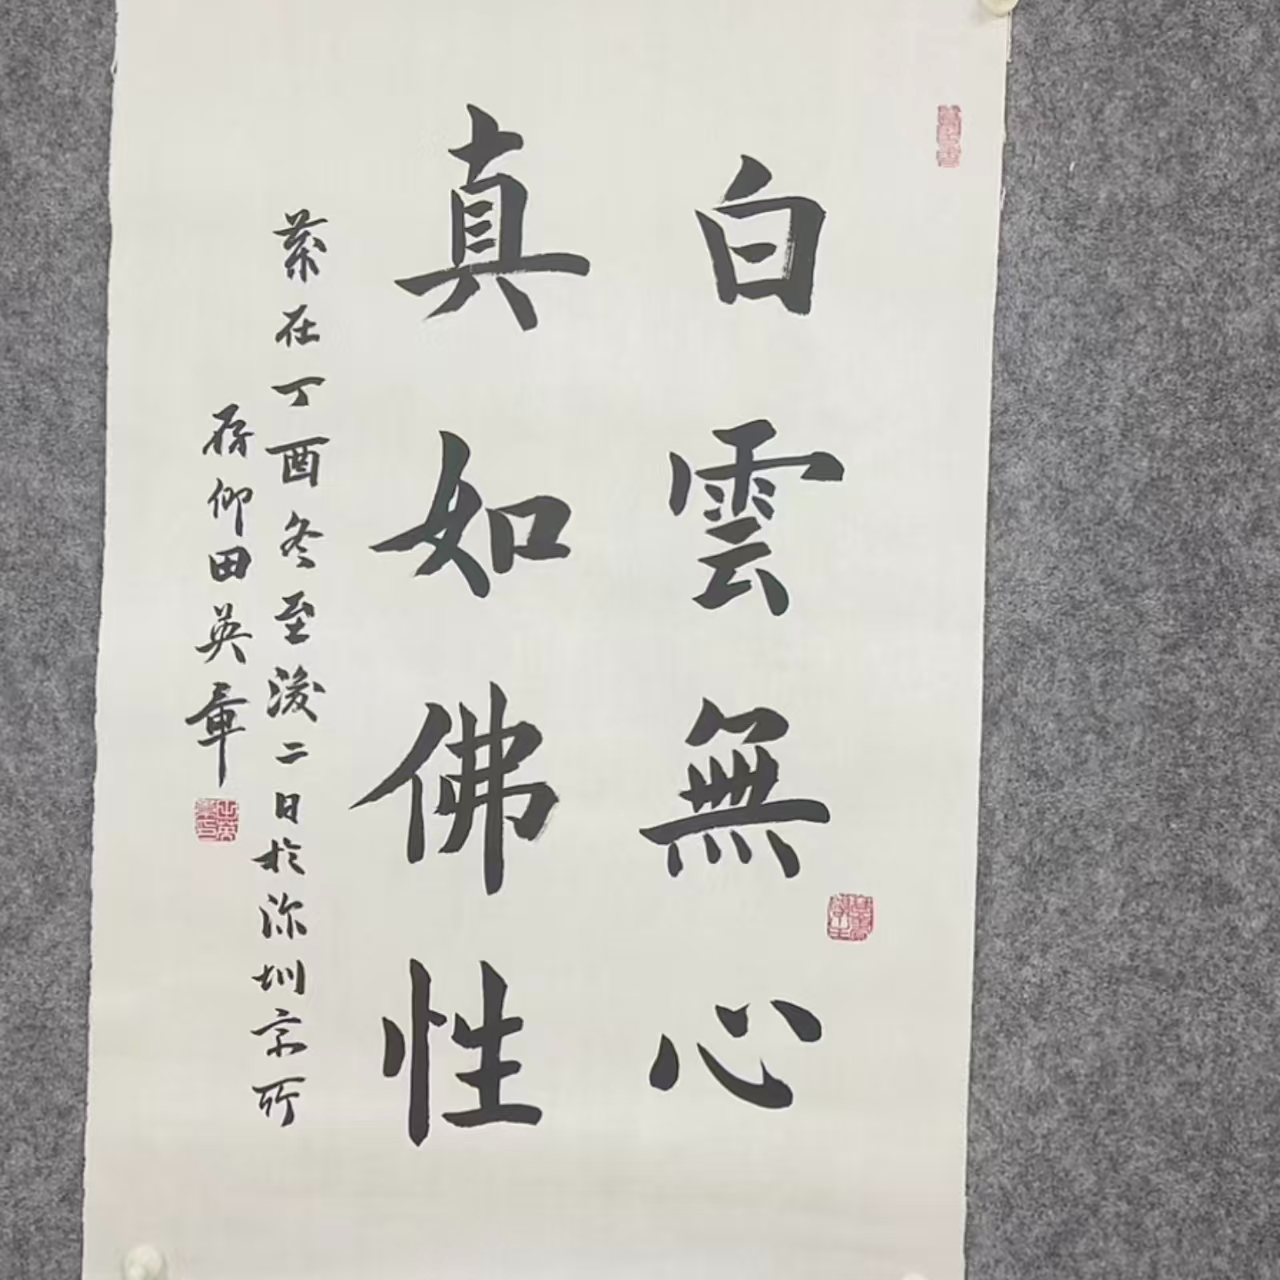 白雲無心
真如佛性
在丁酉冬至後二日於深圳京所
存仰田英章